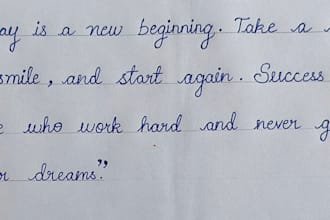 ay is a new beginning. Take a
smile, and start again. Success
who work hard and never g
dreams."